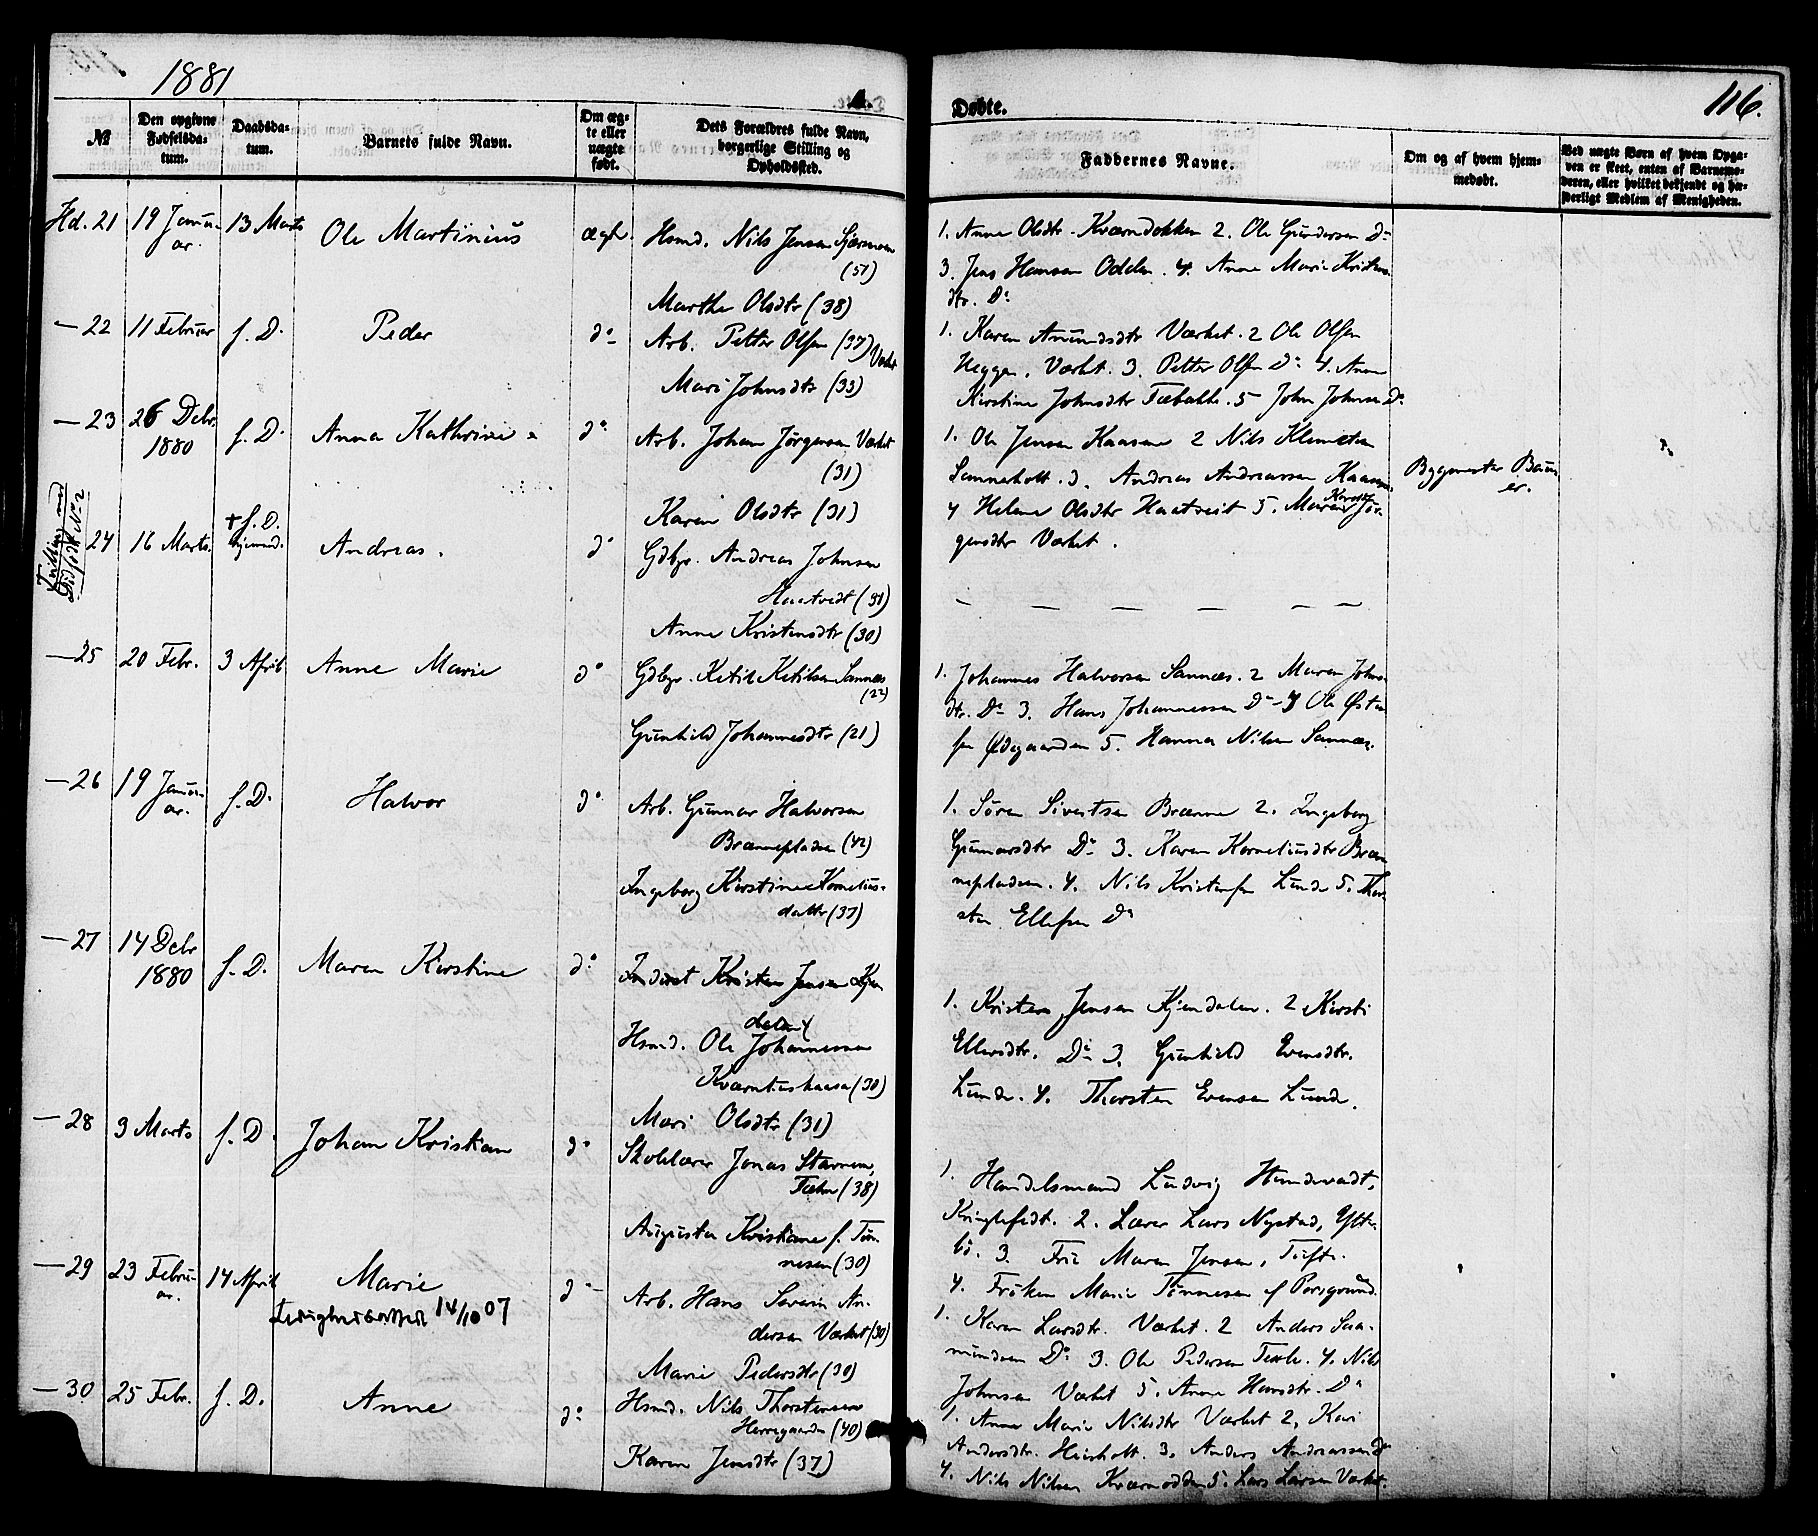 1881
116.
Døbte.
№
Den opgivne Fødselsdatum.
Daabsdatum.
Barnets fulde Navn.
Om ægte eller uægte født.
Dets Forældres fulde Navn, borgerlige Stilling og Opholdssted.
Faddernes Navne.
Om og af hvem hjemmedøbt.
Ved uægte Børn af hvem Opgaven er skeet, enten af Barnemoderen, eller hvilket bekjendt og hæderligt Medlem af Menigheden.
Hd. 21 19 Januar. 13 Marts Ole Martinius ægte Hsmd. Nils Jensen
(51)
Marthe Olsdtr (38)
1. Anne Olsdtr. Kværndokken 2. Ole Gundersen Do
3. Jens Hansen Odden. 4. Anne Marie Kristensdtr. Do
— 22 11 Februar s. D. Peder do Arb. Petter Olsen (37) Værket
Mari Johnsdtr (33)
1. Karen Amundsdtr Værket. 2 Ole Olsen
Heggen, Værket. 3. Petter Olsen Do 4. Anne
Kirstine Johnsdtr 5 John Johnsen Do
— 23 26 Debr 1880 s. D. Anna Kathrine do Arb. Johan Jørgensen Værket
(31)
Karen Olsdtr (31)
1. Ole Jensen Kaasene 2 Nils
3. Andreas Andreassen Kaasene
4 Helene Olsdtr Haatveit 5. Maren Karoline Jørgensdtr Værket.
Bygmester
Tvilling med Dødfødt No 2
24 16 Marts. + s. D. hjemmed. Andreas. do Gdbgr. Andreas Johnsen
Haatvedt (31)
Anne Kristensdtr (30)
— — — — — —
— 25 20 Febr. 3 April Anne Marie do Gdbgr. Ketil Ketilsen Sannæs
(22)
Gunhild Johannesdtr (21)
1. Johannes Halvorsen Sannæs. 2 Maren Johnsdtr. Do 3. Hans Johannessen Do 4 Ole Østensen Ødegaarden 5. Hanna Nilsen Sannæs.
— 26 19 Januar. s. D. Halvor do Arb. Gunnar Halvorsen
Brænnepladsen (42)
Ingeborg Kirstine Korneliusdatter (37)
1. Søren Sivertsen Brænne 2. Ingeborg
Gunnarsdtr Do 3. Karen Korneliusdtr Brænnepladsen. 4. Nils Kristensen Lunde 5. Thorsten Ellefsen Do
— 27 14 Debr 1880 s. D. Maren Kirstine do Inderst Kristen Jensen Kjendalen
Hsmd. Ole Johannessen
(30)
Mari Olsdtr (31)
1. Kristen Jensen Kjendalen. 2 Kirsti
Ellevsdtr. Do 3. Gunhild Evensdtr.
Lunde. 4. Thorsten Evensen Lunde.
— 28 3 Marts s. D. Johan Kristian do Skolelærer Jonas Stavnem,
(38)
Augusta Kristiane f. Tønnesen (30)
1. Handelsmand Ludvig
2. Lærer Lars Nystad,
3. Fru Maren Jensen, Tufte.
4. Frøken Marie Tønnesen af Porsgrund.
— 29 23 Februar. 14 April Marie do Arb. Hans Severin Andersen Værket (30)
14/10 07
Marie Pedersdtr (30)
1. Karen Larsdtr. Værket. 2 Anders Saamundsen Do 3. Ole Pedersen 4. Nils
Johnsen Værket 5. Anne Hansdtr. Do
— 30 25 Febr. s. D. Anne do Hsmd. Nils Thorstensen
Herregaarden (40)
Karen Jensdtr (37)
1. Anne Marie Nilsdtr Værket 2. Kari
Andersdtr. Heisholt. 3. Anders Andreassen Do
4. Nils Nilsen Kværnodden 5. Lars Larsen Værket.